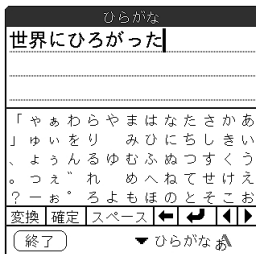 ひらがな
世界にひろがった
「 ゃ ぁ わ ら や ま は な た さ か あ
」 ゅ ぃ を り み ひ に ち し き い
、 ょ ぅ ん る ゆ む ふ ぬ つ す く う
。 っ ぇ ゛ れ め へ ね て せ け え
? ー ぉ ゜ ろ よ も ほ の と そ こ お
変換 確定 スペース
終了 ひらがな あ